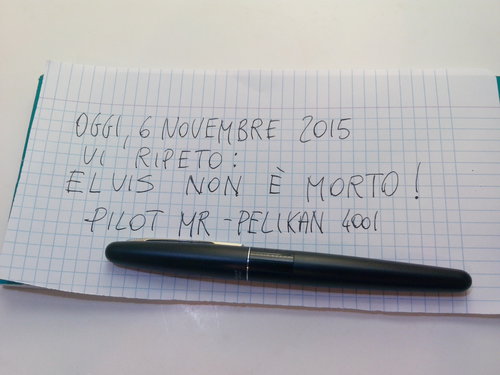 OGGI, 6 NOVEMBRE 2015
VI RIPETO:
ELVIS NON È MORTO!
-PILOT MR -PELIKAN 4001